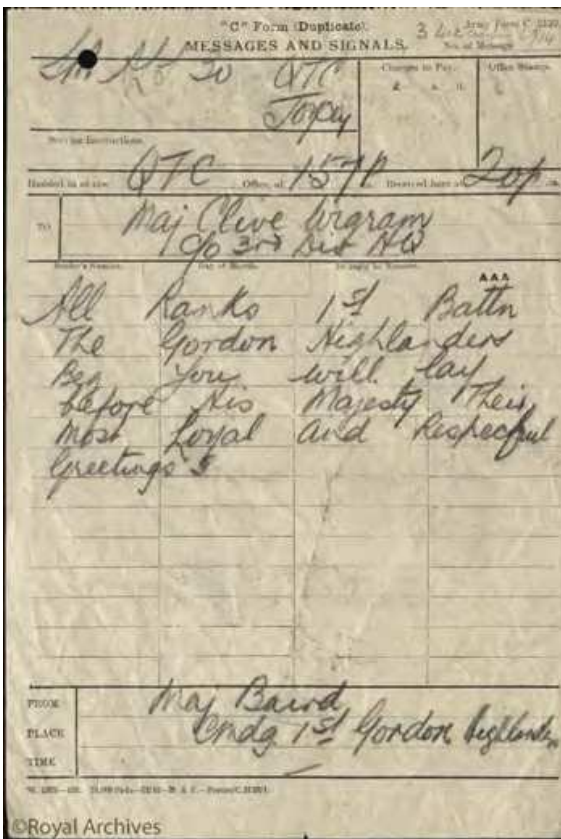 "C" Form (Duplicate).
Army Form C.
MESSAGES AND SIGNALS.
No. of Message
20 QTC
Charges to Pay.
Office Stamp.
Service Instructions.
Handed in at the QTC Office, at 157 p Received here at 20p
TO Maj Clive Wigram
c/o 3rd Div HQ
Sender's Number.
Day of Month.
In reply to Number.
AAA
All Ranks 1st Battn
The Gordon Highlanders
Beg You will lay
before His Majesty Their
most Loyal and Respecful
Greetings
FROM Maj Baird
PLACE Cmdg 1st Gordon Highlanders
TIME
©Royal Archives